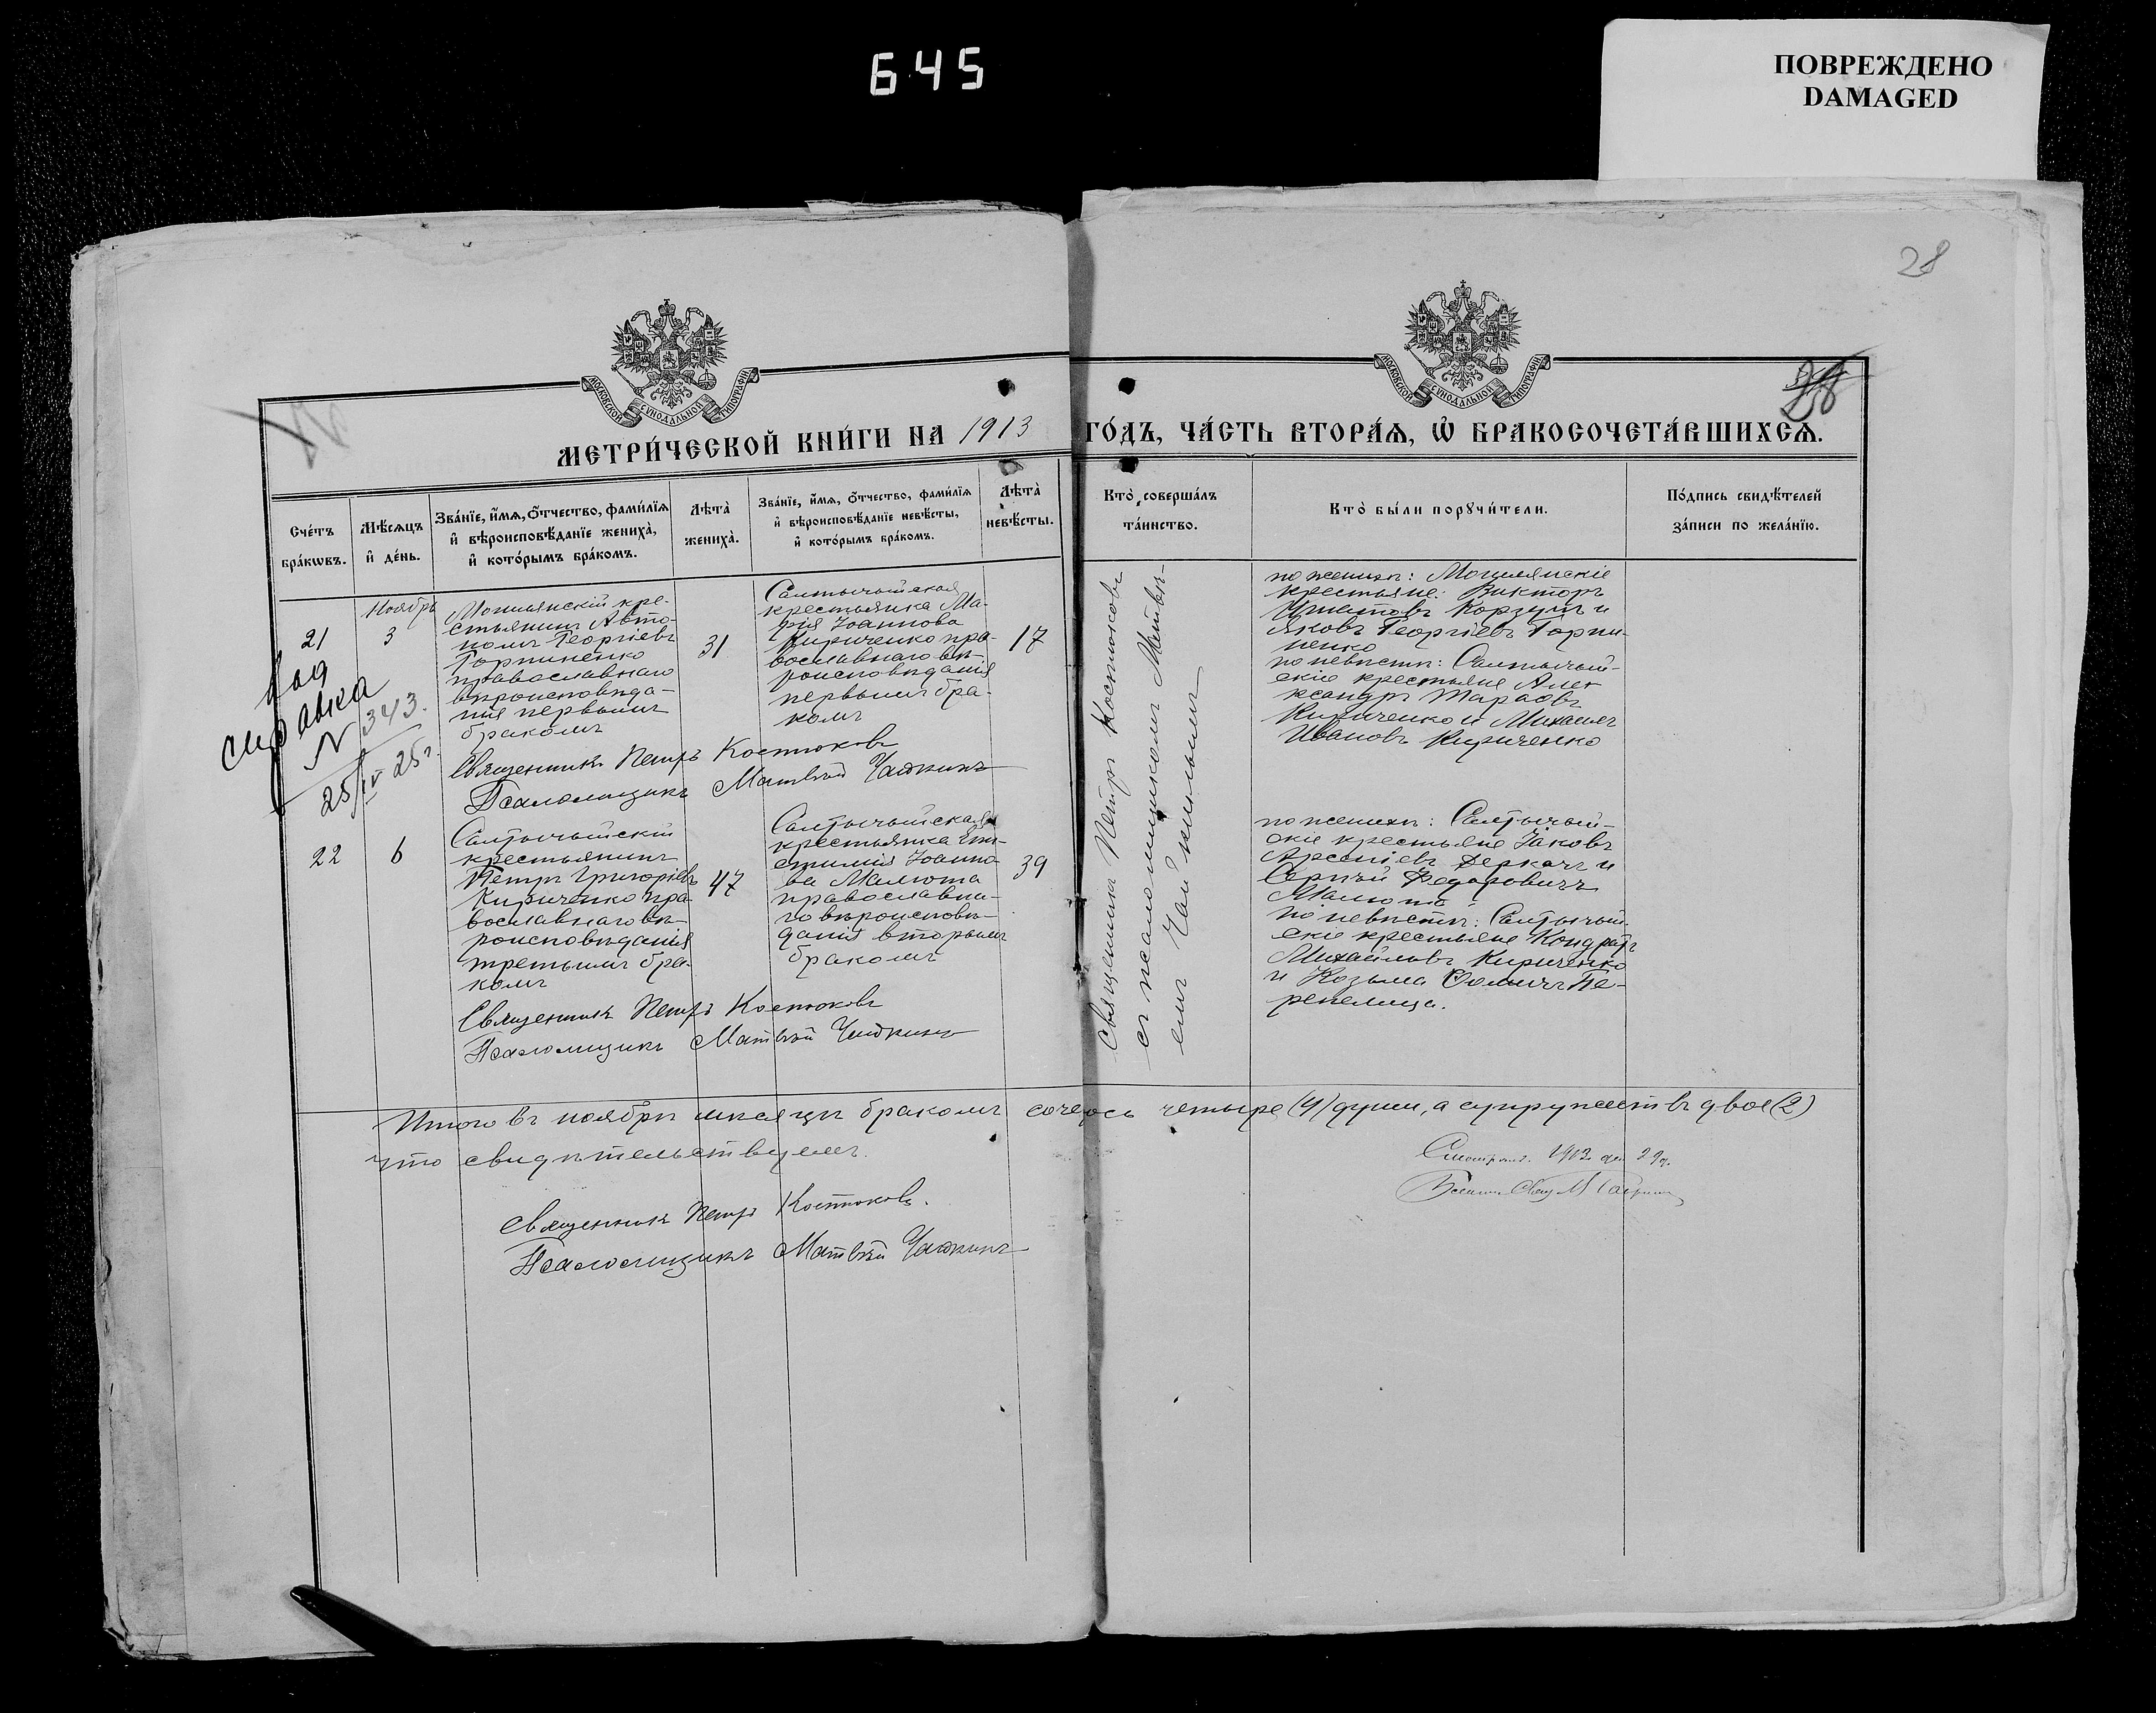 645
ПОВРЕЖДЕНО
DAMAGED
28
МОСКОВСКОЙ СѴНОДАЛЬНОЙ ТИПОГРАФІИ
МОСКОВСКОЙ СѴНОДАЛЬНОЙ ТИПОГРАФІИ
28
МЕТРИ́ЧЕСКОЙ КНИ́ГИ НА 1913 ГО́ДЪ, ЧА́СТЬ ВТОРА́Ѧ, Ѽ БРАКОСОЧЕТА́ВШИХСѦ.
Сче́тъ
бра́кѡвъ.
Мѣ́сѧцъ
и҆ де́нь.
Зва́нїе, и҆́мѧ, ѻ҆́тчество, фами́лїѧ
и҆ вѣроисповѣ́данїе жениха̀,
и҆ кото́рымъ бра́комъ.
Лѣта̀
жениха̀.
Зва́нїе, и҆́мѧ, ѻ҆́тчество, фами́лїѧ
и҆ вѣроисповѣ́данїе невѣ́сты,
и҆ кото́рымъ бра́комъ.
Лѣта̀
невѣ́сты.
Кто̀ соверша́лъ
та́инство.
Кто̀ бы́ли порꙋчи́тели.
По́дпись свидѣ́телей
за́писи по жела́нїю.
21
Ноябрь
3
Могилянскій кре-
стьянинъ Авто-
номъ Георгіевъ
Горпиненко
православнаго
вѣроисповѣда-
нія первымъ
бракомъ
31
Салтычійская
крестьянка Ма-
рія Іоаннова
Кириченко пра-
вославнаго вѣ-
роисповѣданія
первымъ бра-
комъ
17
Священникъ Петръ Костюковъ
съ псаломщикомъ Матвѣ-
емъ
по женихѣ: Могилянскіе
крестьяне: Викторъ
Игнатовъ Корзунъ и
Яковъ Георгіевъ Горпи-
ненко
по невѣстѣ: Салтычій-
скіе крестьяне Алек
ксандръ Тарасовъ
Кириченко и Михаилъ
Ивановъ Кириченко
выд
справка
N 343.
25/IV 25 г.
Священникъ Петръ Костюковъ
Псаломщикъ Матвѣй
22
6
Салтычійскій
крестьянинъ
Петръ Григоріевъ
Кириченко пра-
вославнаго вѣ-
роисповѣданія
третьимъ бра-
комъ
47
Салтычійская
крестьянка Ев-
фимія Іоанно
ва Малюта
православна-
го вѣроисповѣ-
данія вторымъ
бракомъ
39
по женихѣ: Салтычій-
скіе крестьяне Іаковъ
Арсеніевъ Деркачъ и
Сергѣй Федоровичъ
Малюта
по невѣстѣ: Салтычій-
скіе крестьяне Кондратъ
Михайловъ Кириченко
и Козьма Ѳомичъ Пе-
репелица.
Священникъ Петръ Костюковъ
Псаломщикъ Матвѣй
Итого въ ноябрѣ мѣсяцѣ бракомъ сочелось четыре (4) души, а супружествъ двое (2)
что свидѣтельствуемъ.
Священникъ Петръ Костюковъ.
Псаломщикъ Матвѣй